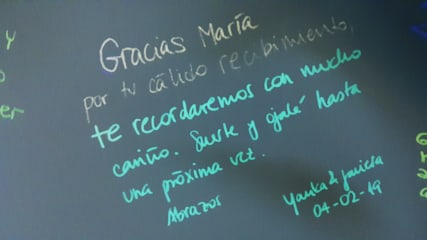 Gracias María
por tu cálido recibimiento,
te recordaremos con mucho
cariño. Suerte y ojalá hasta
una próxima vez.
Abrazos
04-02-19
y
er